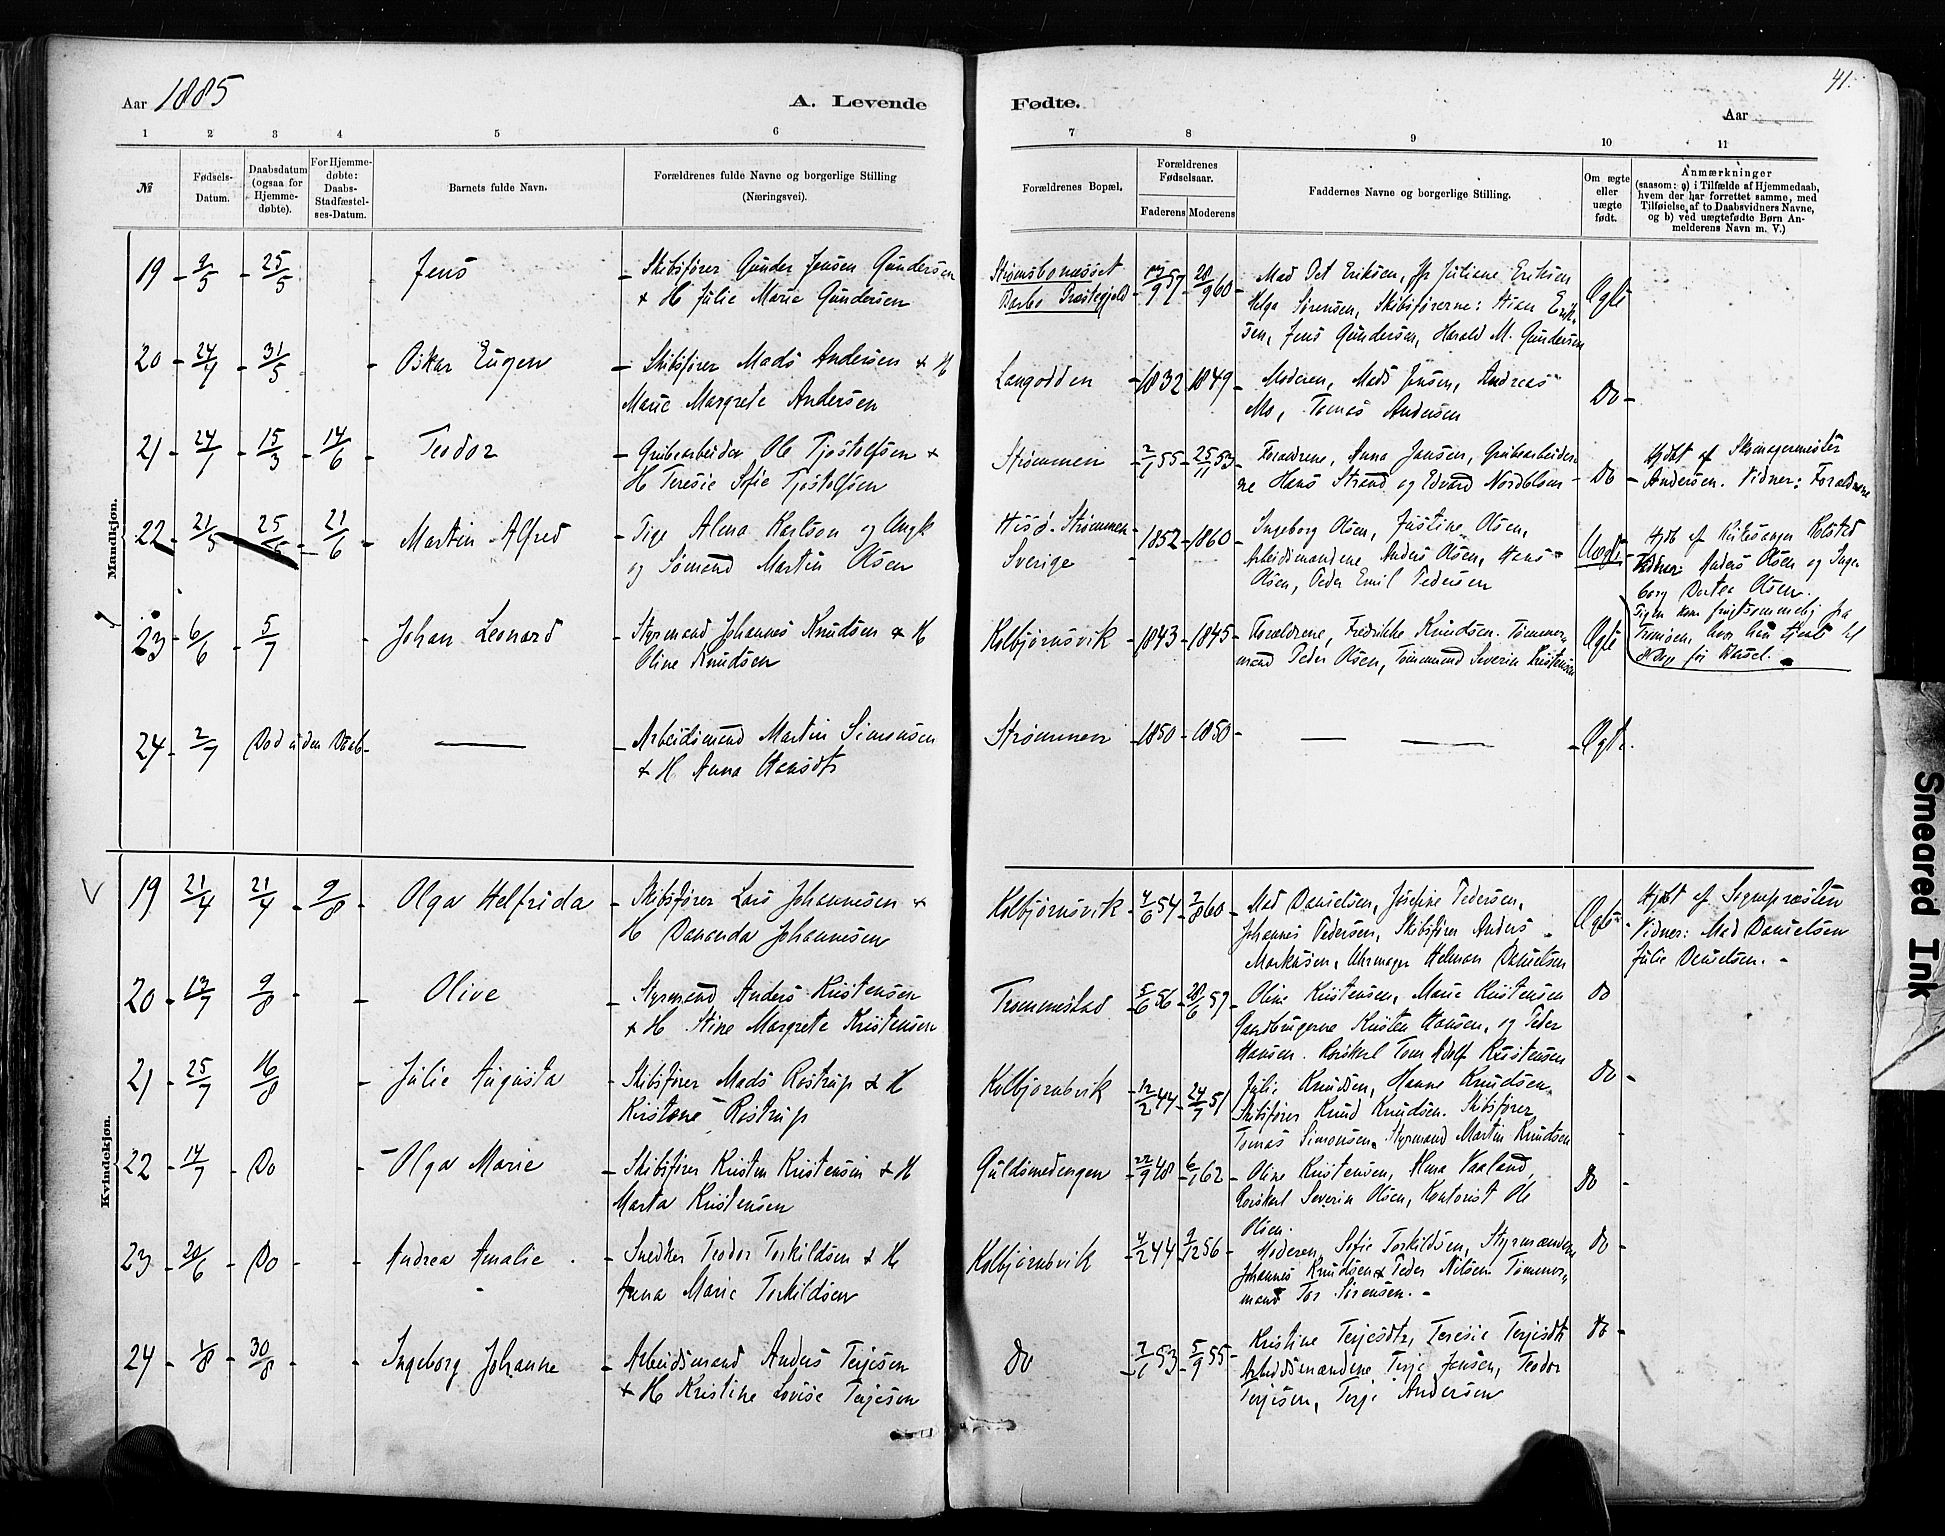 Aar 1885
A. Levende
1 2 3 4 5 6
№
Fødsels-
Datum.
Daabsdatum
(ogsaa for
Hjemme-
døbte).
For Hjemme-
døbte:
Daabs-
Stadfæstel-
ses-Datum.
Barnets fulde Navn.
Forældrenes fulde Navne og borgerlige Stilling
(Næringsvei).
Mandkjøn.
19 - 9/5 - 25/5 - Jens - Skibsfører Gunder Jensen Gundersen
& H Julie Marie Gundersen
20 - 24/4 - 31/5 - Oskar Eugen - Skibsfører Mads Andersen & H
Marie Margrete Andersen
21 - 24/1 - 15/3 - 14/6 - Teodor - Grubearbeider Ole Tjostolfsen &
H Teresie Sofie Tjostolfsen
22 - 21/5 - 25/5 - 21/6 - Martin Alfred - Pige Alena Karlson og Ungk
og Sømand Martin Olsen
23 - 6/6 - 5/7 - Johan Leonard - Styrmand Johannes Knudsen & H
Oline Knudsen
24 - 2/7 Død uden Daab - Arbeidsmand Martin Simonsen
& H Anna Hansdtr
Kvindekjøn.
19 21/4 21/4 - 9/8 - Olga Helfrida - Skibsfører Lars Johannesen &
H Dananda Johannesen
20 - 13/7 9/8 - Olive - Styrmand Anders Kristensen
& H Stine Margrete Kristensen
21 - 25/7 16/8 - Julie Augusta - Skibsfører Mads Rostrup & H
Kirstine Rostrup
22 - 14/7 - Do - Olga Marie - Skibsfører Kristen Kristensen & H
Marta Kristensen
23 - 20/6 - Do - Andrea Amalie - Snedker Teodor Torkildsen & H
Anna Marie Torkildsen
24 - 1/8 - 30/8 - Ingeborg Johanne - Arbeidsmand Anders Terjesen
& H Kristine Lovise Terjesen
41.
Fødte.
Aar
7 8 9 10 11
Forældrenes Bopæl.
Forældrenes
Fødselsaar.
Faderens Moderens
Faddernes Navne og borgerlige Stilling.
Om ægte
eller
uægte
født.
Anmærkninger
(saasom: a) i Tilfælde af Hjemmedaab,
hvem der har forrettet samme, med
Tilføielse af to Daabsvidners Navne,
og b) ved uægtefødte Børn An-
melderens Navn m. V.)
Strømsbomæsset
Barbo Præstegjeld 57 - 28/9 60 - Mad Pet Eriksen, Jfr Juliene Eriksen
Helga Sørensen, Skibsførerne: Stian Erik-
sen, Jens Gundersen, Harald M. Gundersen Ægte
Langodden - 1832 - 1849 - Moderen, Mads Jensen, Andreas
Mo, Tomas Andersen Do -
Strømmen - 2/1 55 - 25/11 53 - Forældrene, Anna Jensen, Grubearbeider
ne Hans Strand og Edvard Nordblom - Do - Hjdbt af Skomagermester
Andersen. Vidner: Forældrene
Hisø. Strømmen
Sverige - 1852 - 1860 - Ingeborg Olsen, Justine Olsen,
Arbeidsmændene Anders Olsen, Hans
Olsen, Peder Emil Pedersen Uægte - Hjdb af Kirkesanger Kolstad
Vidner Anders Olsen og Inge
borg Dortea Olsen.
Pigen kom frugtsommelig fra
Tromøen, hvor hun
før Barsel.
Kolbjørnsvik - 1843 - 1845 - Forældrene, Fredrikke Knudsen. Tømmer-
mand Peder Olsen, Tømmermand Severin Kristensen Ægte
Strømmen - 1850 - 1850 - Ægte.
Kolbjørnsvik - 4/6 54 - 7/8 60 - Mad Danielsen, Josefine Pedersen,
Johannes Pedersen, Skibsfører Anders
Markusen, Uhrmager Helman Danielsen Ægte - Hjdbt af Sognepræsten
Vidner: Mad Danielsen
Julie Danielsen. -
Trommestad - 5/6 56 - 28/6 57 - Oline Kristensen, Marie Kristensen
Gaardbrugerne Kristen Hansen, og Peder
Hansen. Ungkarl Tom Adolf Kristensen Do
Kolbjørnsvik - 12/2 44 - 24/7 51 - Julie Knudsen, Hanne Knudsen.
Skibsfører Knud Knudsen. Skibsfører
Tomas Simonsen. Styrmand Martin Knudsen Do -
Guldsmedengen - 22/9 48 - 6/1 62 - Oline Kristensen, Anna Vaaland,
Ungkarl Severin Olsen, Kontorist Ole
Olsen. Do -
Kolbjørnsvik - 4/2 44 - 9/12 56 - Moderen, Sofie Torkildsen, Styrmændene
Johannes Knudsen & Peder Nilsen. Tømmer-
mand Tor Sørensen. - Do -
Do - 7/1 53 - 5/9 55 - Kristine Terjesdtr, Teresie Terjesdtr
Arbeidsmændene Terje Jensen, Teodor
Terjesen, Terje Andersen Do -
Smeared Ink